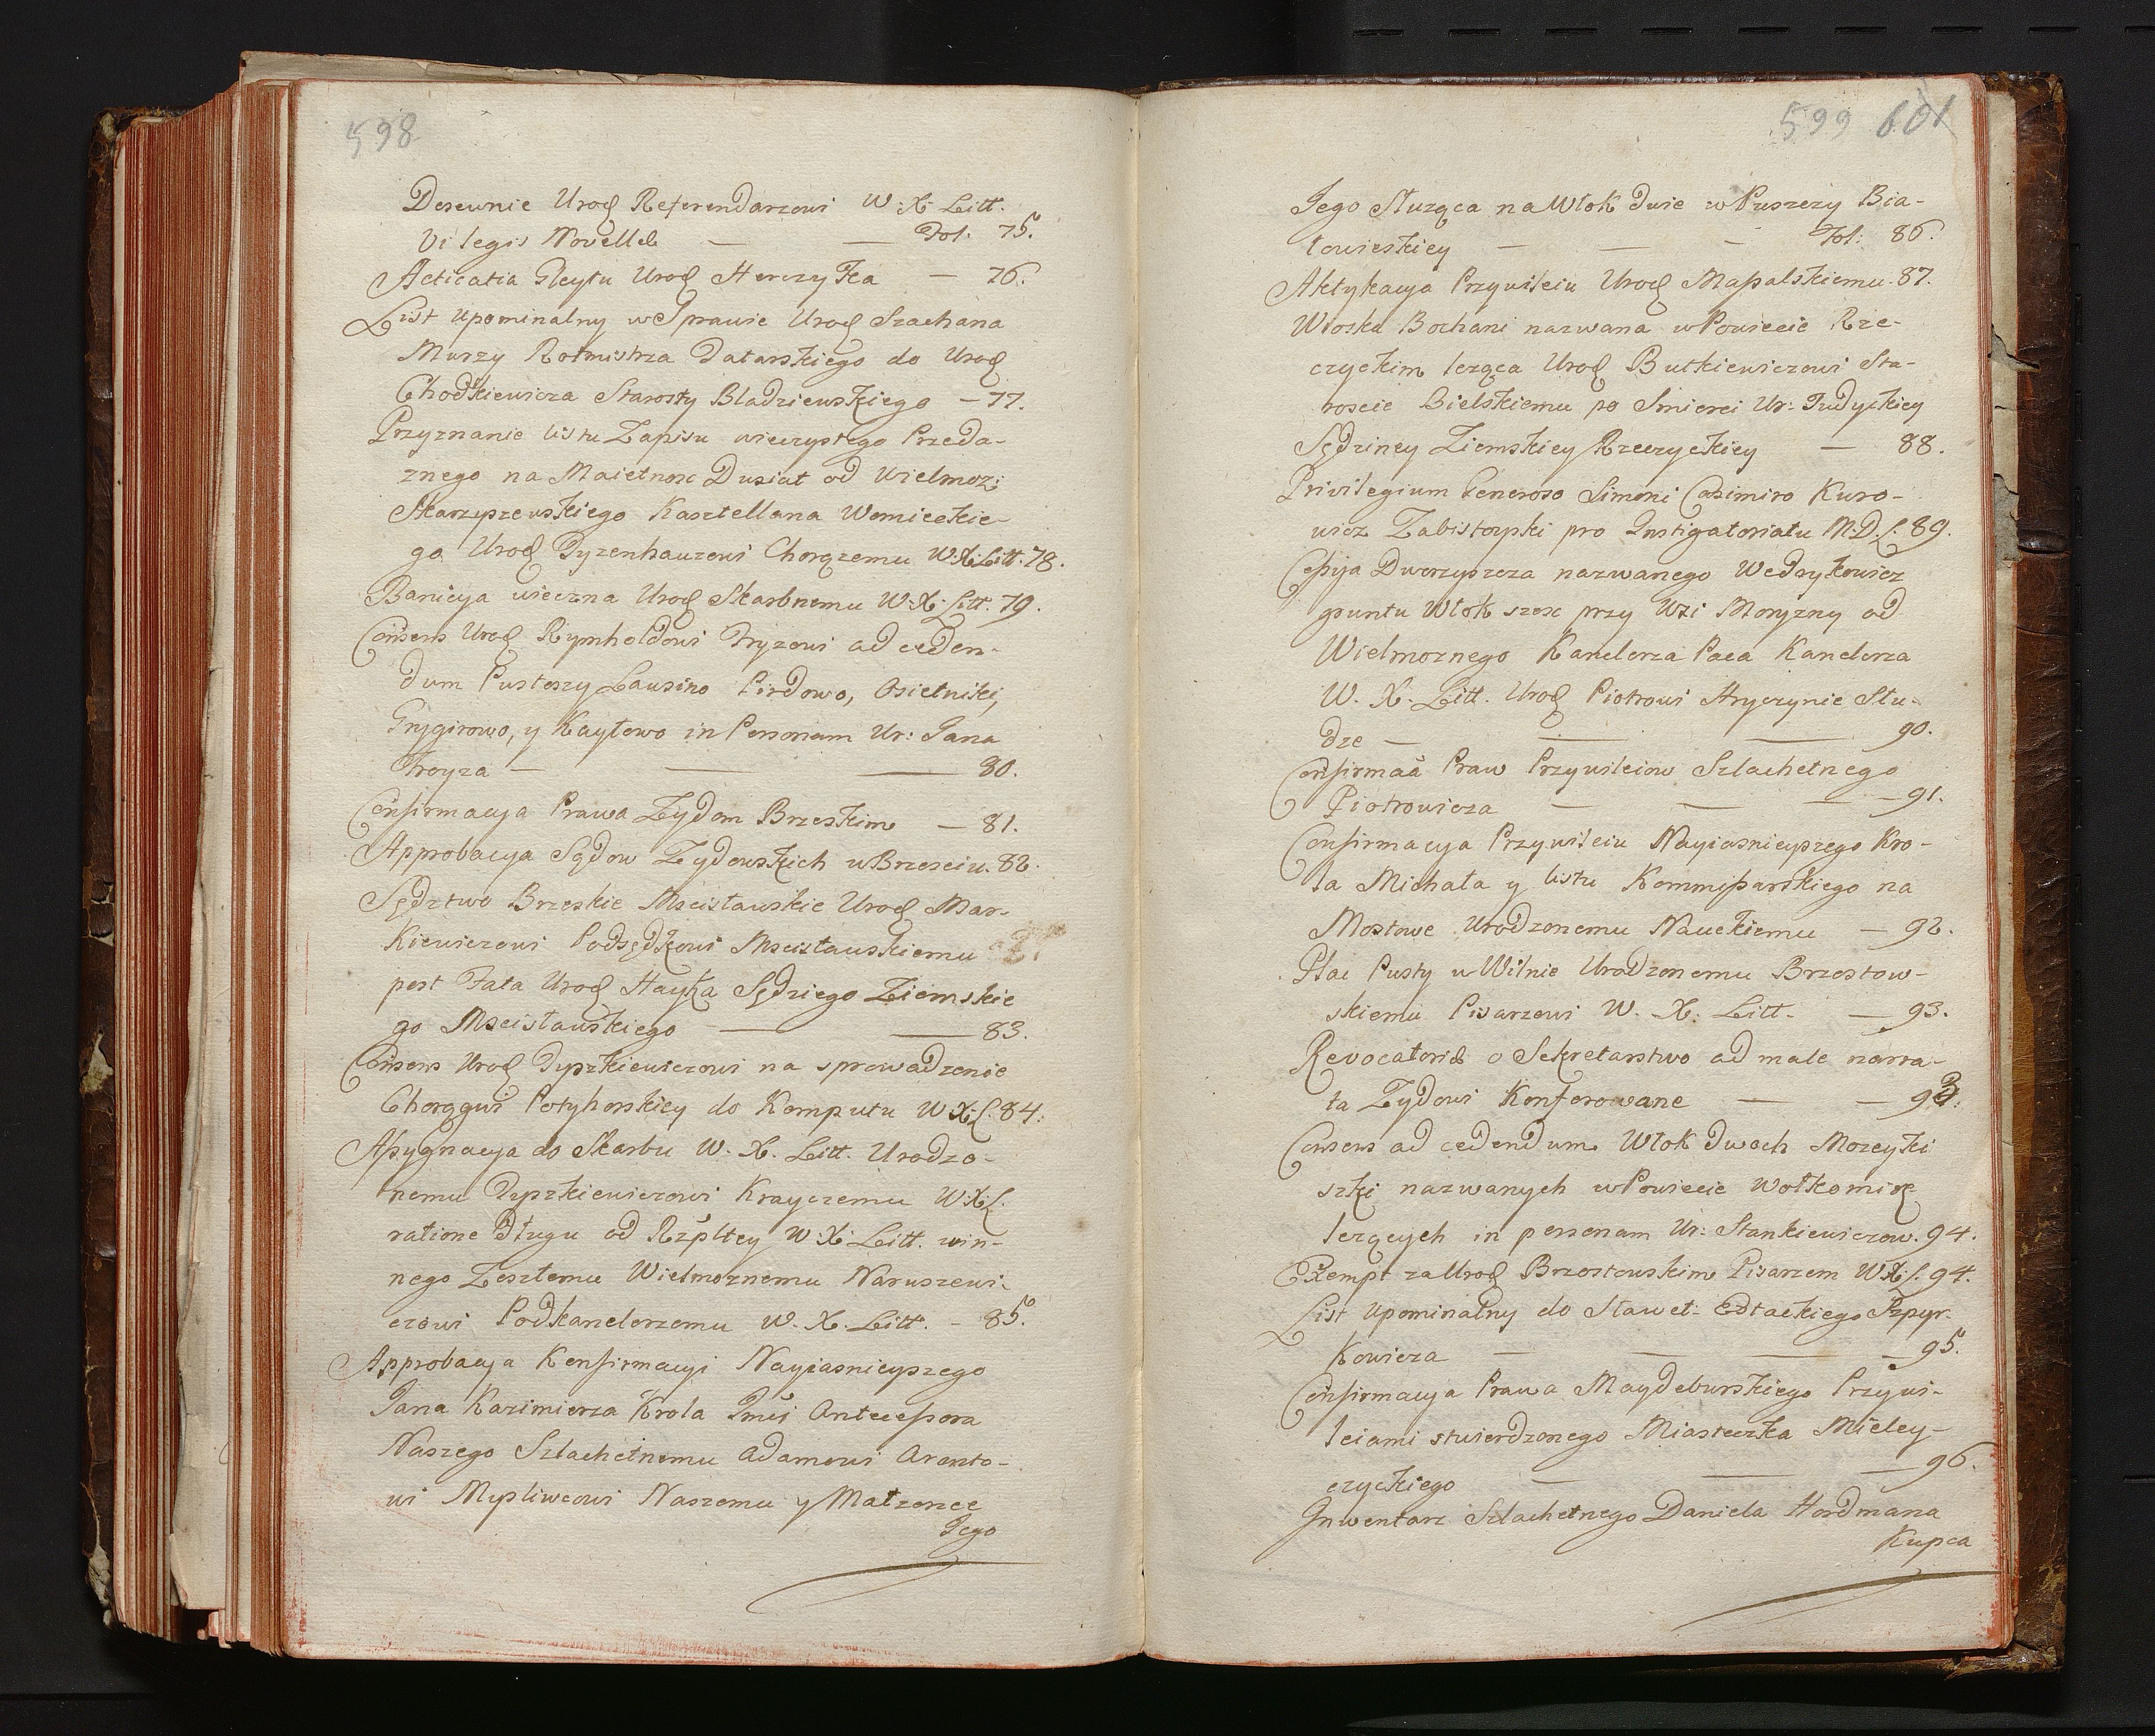 598
Derewnie Urodz Referendarzowi W. X. Litt.
Vi legis Novellæ — — Fol. 75.
Acticatia Gleytu Urodz Herczyka — 76.
List upominalny w Sprawie Urodz Szachana
Murzy Rotmistrza Tatarskiego do Urodz
Chodkiewicza Starosty Bladziewskiego — 77.
Przyznanie listu Zapisu wieczystego Przeda-
znego na Maietnosc Dusiat od Wielmoz:
Skarzyszewskiego Kasztellana
go Urodz Tyzenhauzowi Chorązemu W.X. Litt. 78.
Banicya wieczna Urodz Skarbnemu W. X. Litt. 79.
Consens Urodz Rymholdowi Fryzowi ad ceden-
dum Pustoszy Lausino Pirdowo, Osietniki,
Grygirowo, y Kaytowo in Personam Ur: Jana
Freyza — — — 80.
Confirmacya Prawa Zydom Brzeskim — 81.
Approbacya Sądow Zydowskich w Brzesciu. 82.
Sędztwo Brzeskie Mscisławskie Urodz Mar-
kiewiczowi Podsędkowi Mscisławskiemu
post Fata Urodz Hayka Sędziego Ziemskie
go Mscisławskiego — — 83.
Consens Urodz Tyszkiewiczowi na sprowadzenie
Chorągwi Petyhorskiey do Komputu W. X. L. 84.
Assygnacya do Skarbu W. X. Litt. Urodzo-
nemu Tyszkiewiczowi Krayczemu W. X. L.
ratione Długu od Rzpltey W. X. Litt. win-
nego Zeszłemu Wielmoznemu Naruszewi-
czowi Podkanclerzemu W. X. Litt. - 85.
Approbacya Konfirmacyi Nayiasnieyszego
Jana Kazimierza Krola Jmci Antecessora
Naszego Szlachetnemu Adamowi Arento-
wi Mysliwcowi Naszemu y Małzonce
Jego
599 601
Jego Sluząca na Włok dwie w Puszczy Bia-
łowieskiey — — — Fol: 86.
Aktykacya Przywileiu Urodz Massalskiemu. 87.
Wioska Bochani nazwana w Powiecie Rze-
czyckim leząca Urodz Butkiewiczowi Sta-
roscie Bielskiemu po Smierci Ur: Judyckiey
Sędziney Ziemskiey Rzeczyckiey — 88.
Privilegium Generoso Simoni Casimiro Kuro-
wicz Zabistorpki pro Instigatoriatu M. D. L. 89.
Cessya Dworzyszcza nazwanego Wedrykowicz
gruntu Włok szesc przy Wsi Moryzny od
Wielmoznego Kanclerza Paca Kanclerza
W. X. Litt. Urodz Piotrowi Hryczynie Słu-
dze — — — 90.
Confirmaā Praw Przywileiow Szlachetnego
Piotrowicza — — — 91.
Confirmacya Przywileiu Nayiasnieyszego Kro-
la Michała y listu Kommissarskiego na
Mostowe Urodzonemu Nauckiemu — 92.
Plac Pusty w Wilnie Urodzonemu Brzostow-
skiemu Pisarzowi W. X. Litt. — 93.
Revocatoriæ o Sekretarstwo ad male narra-
ta Zydowi Konferowane — — 93.
Consens ad cedendum Włok dwoch Mozeyki
szki nazwanych w Powiecie Wołkomirz
lezących in personam Ur: Stankiewiczow. 94.
Exempt za Urodz Brzostowskim Pisarzem W. X. L. 94.
List upominalny do Sławet: Szpyr-
kowicza — — — 95.
Confirmacya Prawa Maydeburskiego Przywi-
leiami stwierdzonego Miasteczka Mieley-
czyckiego — — — 96.
Inwentarz Szlachetnego Daniela Hordmana
Kupca